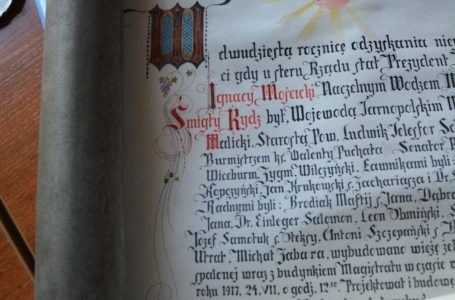 W dwudziestą rocznicę odzyskania nie
ci gdy u steru Rządu stał Prezydent
Ignacy Mościcki Naczelnym Wodzem M
Śmigły Rydz był, Wojewodą Tarnopolskim M
Malicki, Starostą Pow. Ludwik Telesfor S
Burmistrzem ks. Walenty Puchała Senator
Wiceburm. Zygm. Wilczyński, Ławnikami byli:
Kopczyński Jan Krukowski s. Zachariasza i Dr.
Radnymi byli: Brediak Mastij s. Jana, Dąbro
Jana, Dr. Einleger Salomon, Leon Obmiński, S
Józef Sametuk s. Ołeksy, Antoni Szczepański s. B
Utrat, Michał Zabara, wybudowano wieżę ze
spalonej wraz z budynkiem Magistratu w czasie
roku 1917. 24. VII, o godz. 12³⁰. Projektował i budowę